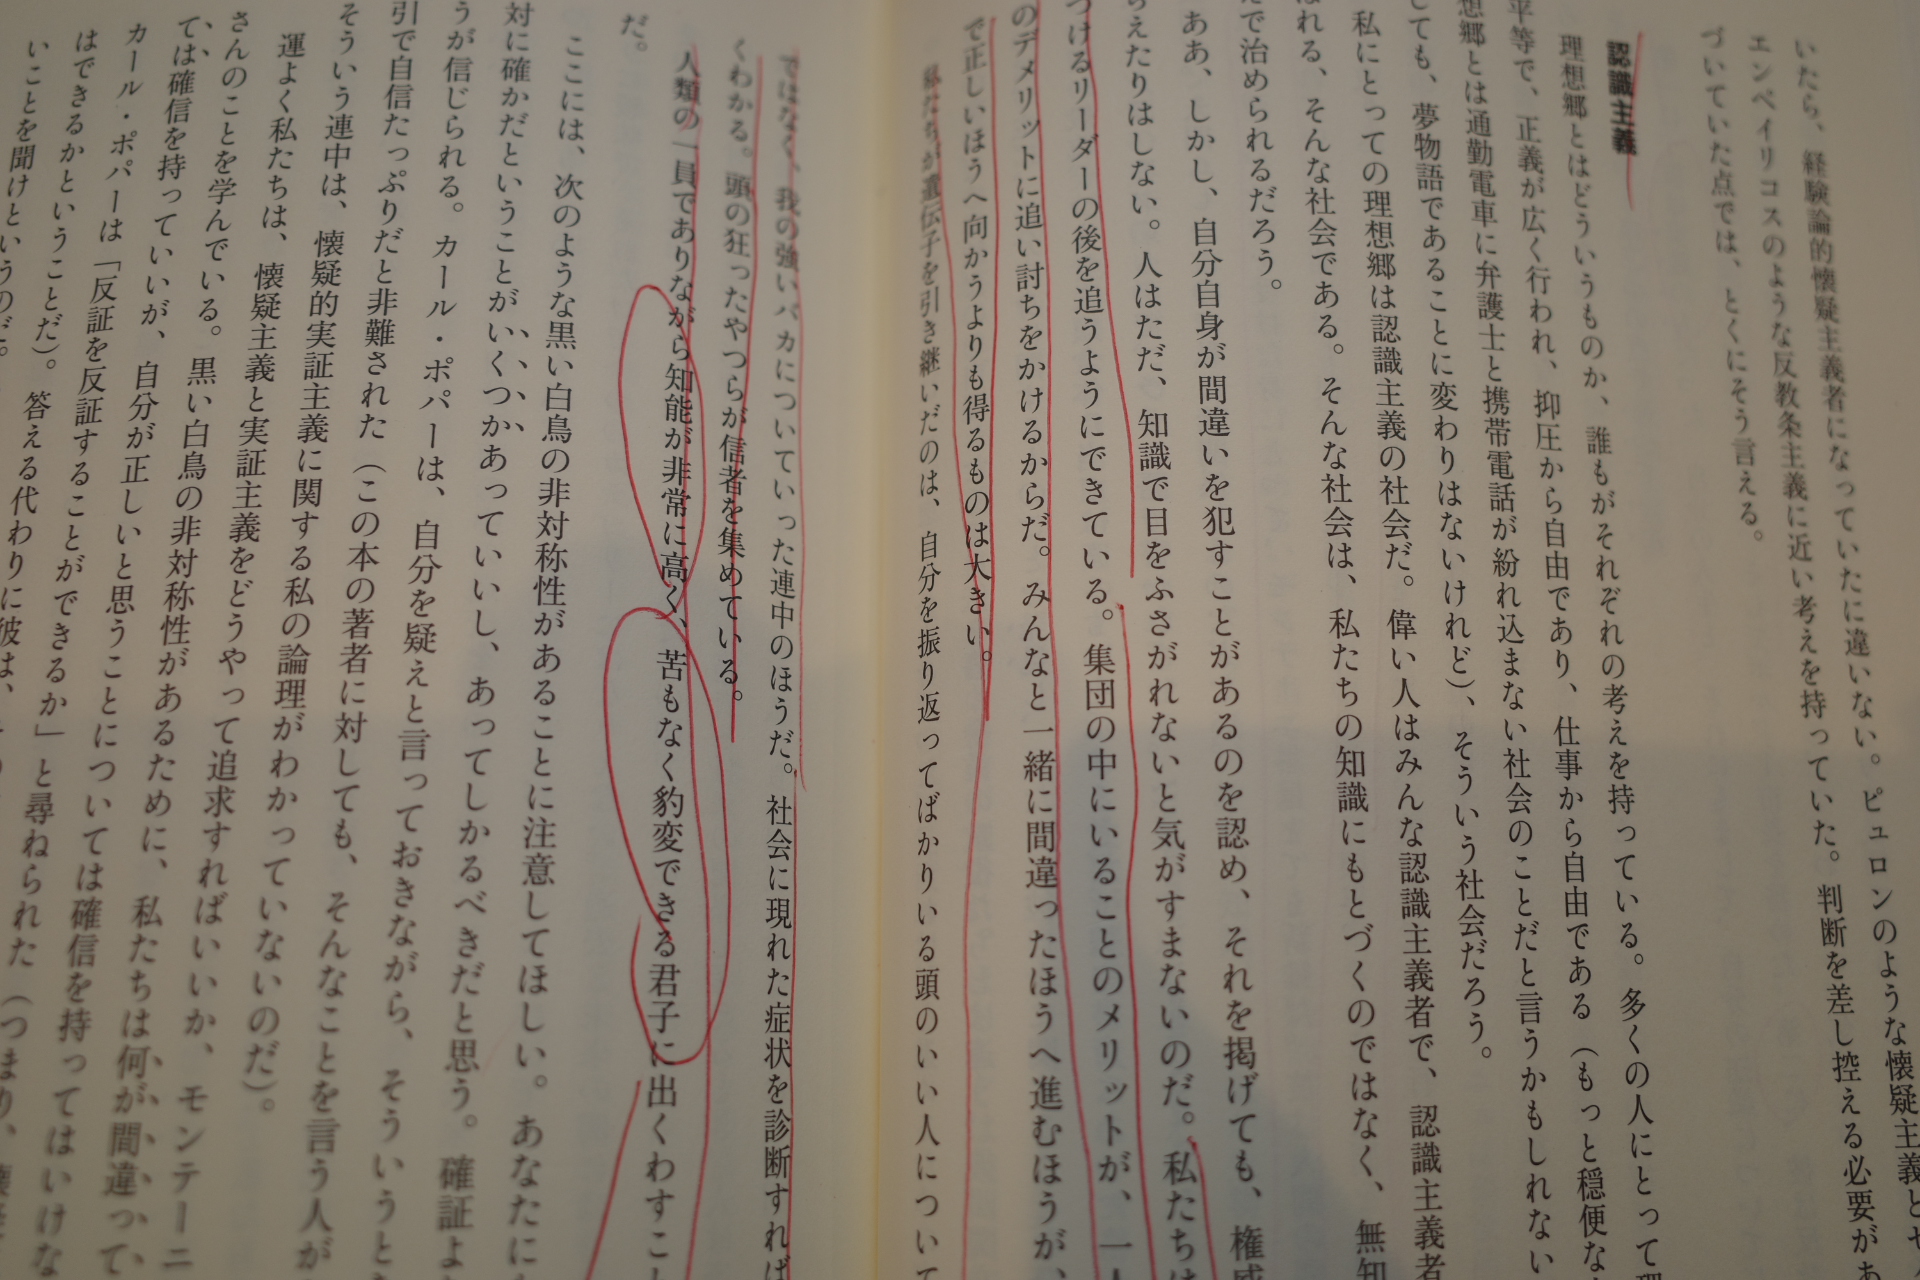 いたら、経験論的懐疑主義者になっていたに違いない。ピュロンのような懐疑主義とセ
エンペイリコスのような反教条主義に近い考えを持っていた。判断を差し控える必要があ
づいていた点では、とくにそう言える。
認識主義
理想郷とはどういうものか、誰もがそれぞれの考えを持っている。多くの人にとって理
平等で、正義が広く行われ、抑圧から自由であり、仕事から自由である（もっと穏便な
想郷とは通勤電車に弁護士と携帯電話が紛れ込まない社会のことだと言うかもしれない
しても、夢物語であることに変わりはないけれど）、そういう社会だろう。
私にとっての理想郷は認識主義の社会だ。偉い人はみんな認識主義者で、認識主義者
ばれる、そんな社会である。そんな社会は、私たちの知識にもとづくのではなく、無知
で治められるだろう。
ああ、しかし、自分自身が間違いを犯すことがあるのを認め、それを掲げても、権威
らえたりはしない。人はただ、知識で目をふさがれないと気がすまないのだ。私たちは
つけるリーダーの後を追うようにできている。集団の中にいることのメリットが、一人
のデメリットに追い討ちをかけるからだ。みんなと一緒に間違ったほうへ進むほうが、
で正しいほうへ向かうよりも得るものは大きい。
私たちが遺伝子を引き継いだのは、自分を振り返ってばかりいる頭のいい人について
ではなく、我の強いバカについていった連中のほうだ。社会に現れた症状を診断すれば
くわかる。頭の狂ったやつらが信者を集めている。
人類の一員でありながら知能が非常に高く、苦もなく豹変できる君子に出くわすこ
だ。
ここには、次のような黒い白鳥の非対称性があることに注意してほしい。あなたに
対に確かだということがいくつかあっていいし、あってしかるべきだと思う。確証よ
うが信じられる。カール・ポパーは、自分を疑えと言っておきながら、そういうと
引で自信たっぷりだと非難された（この本の著者に対しても、そんなことを言う人が
そういう連中は、懐疑的実証主義に関する私の論理がわかっていないのだ）。
運よく私たちは、懐疑主義と実証主義をどうやって追求すればいいか、モンテーニ
さんのことを学んでいる。黒い白鳥の非対称性があるために、私たちは何が間違って
ては確信を持っていいが、自分が正しいと思うことについては確信を持ってはいけな
カール・ポパーは「反証を反証することができるか」と尋ねられた（つまり、
はできるかということだ）。答える代わりに彼は、
いことを聞けというのだ。